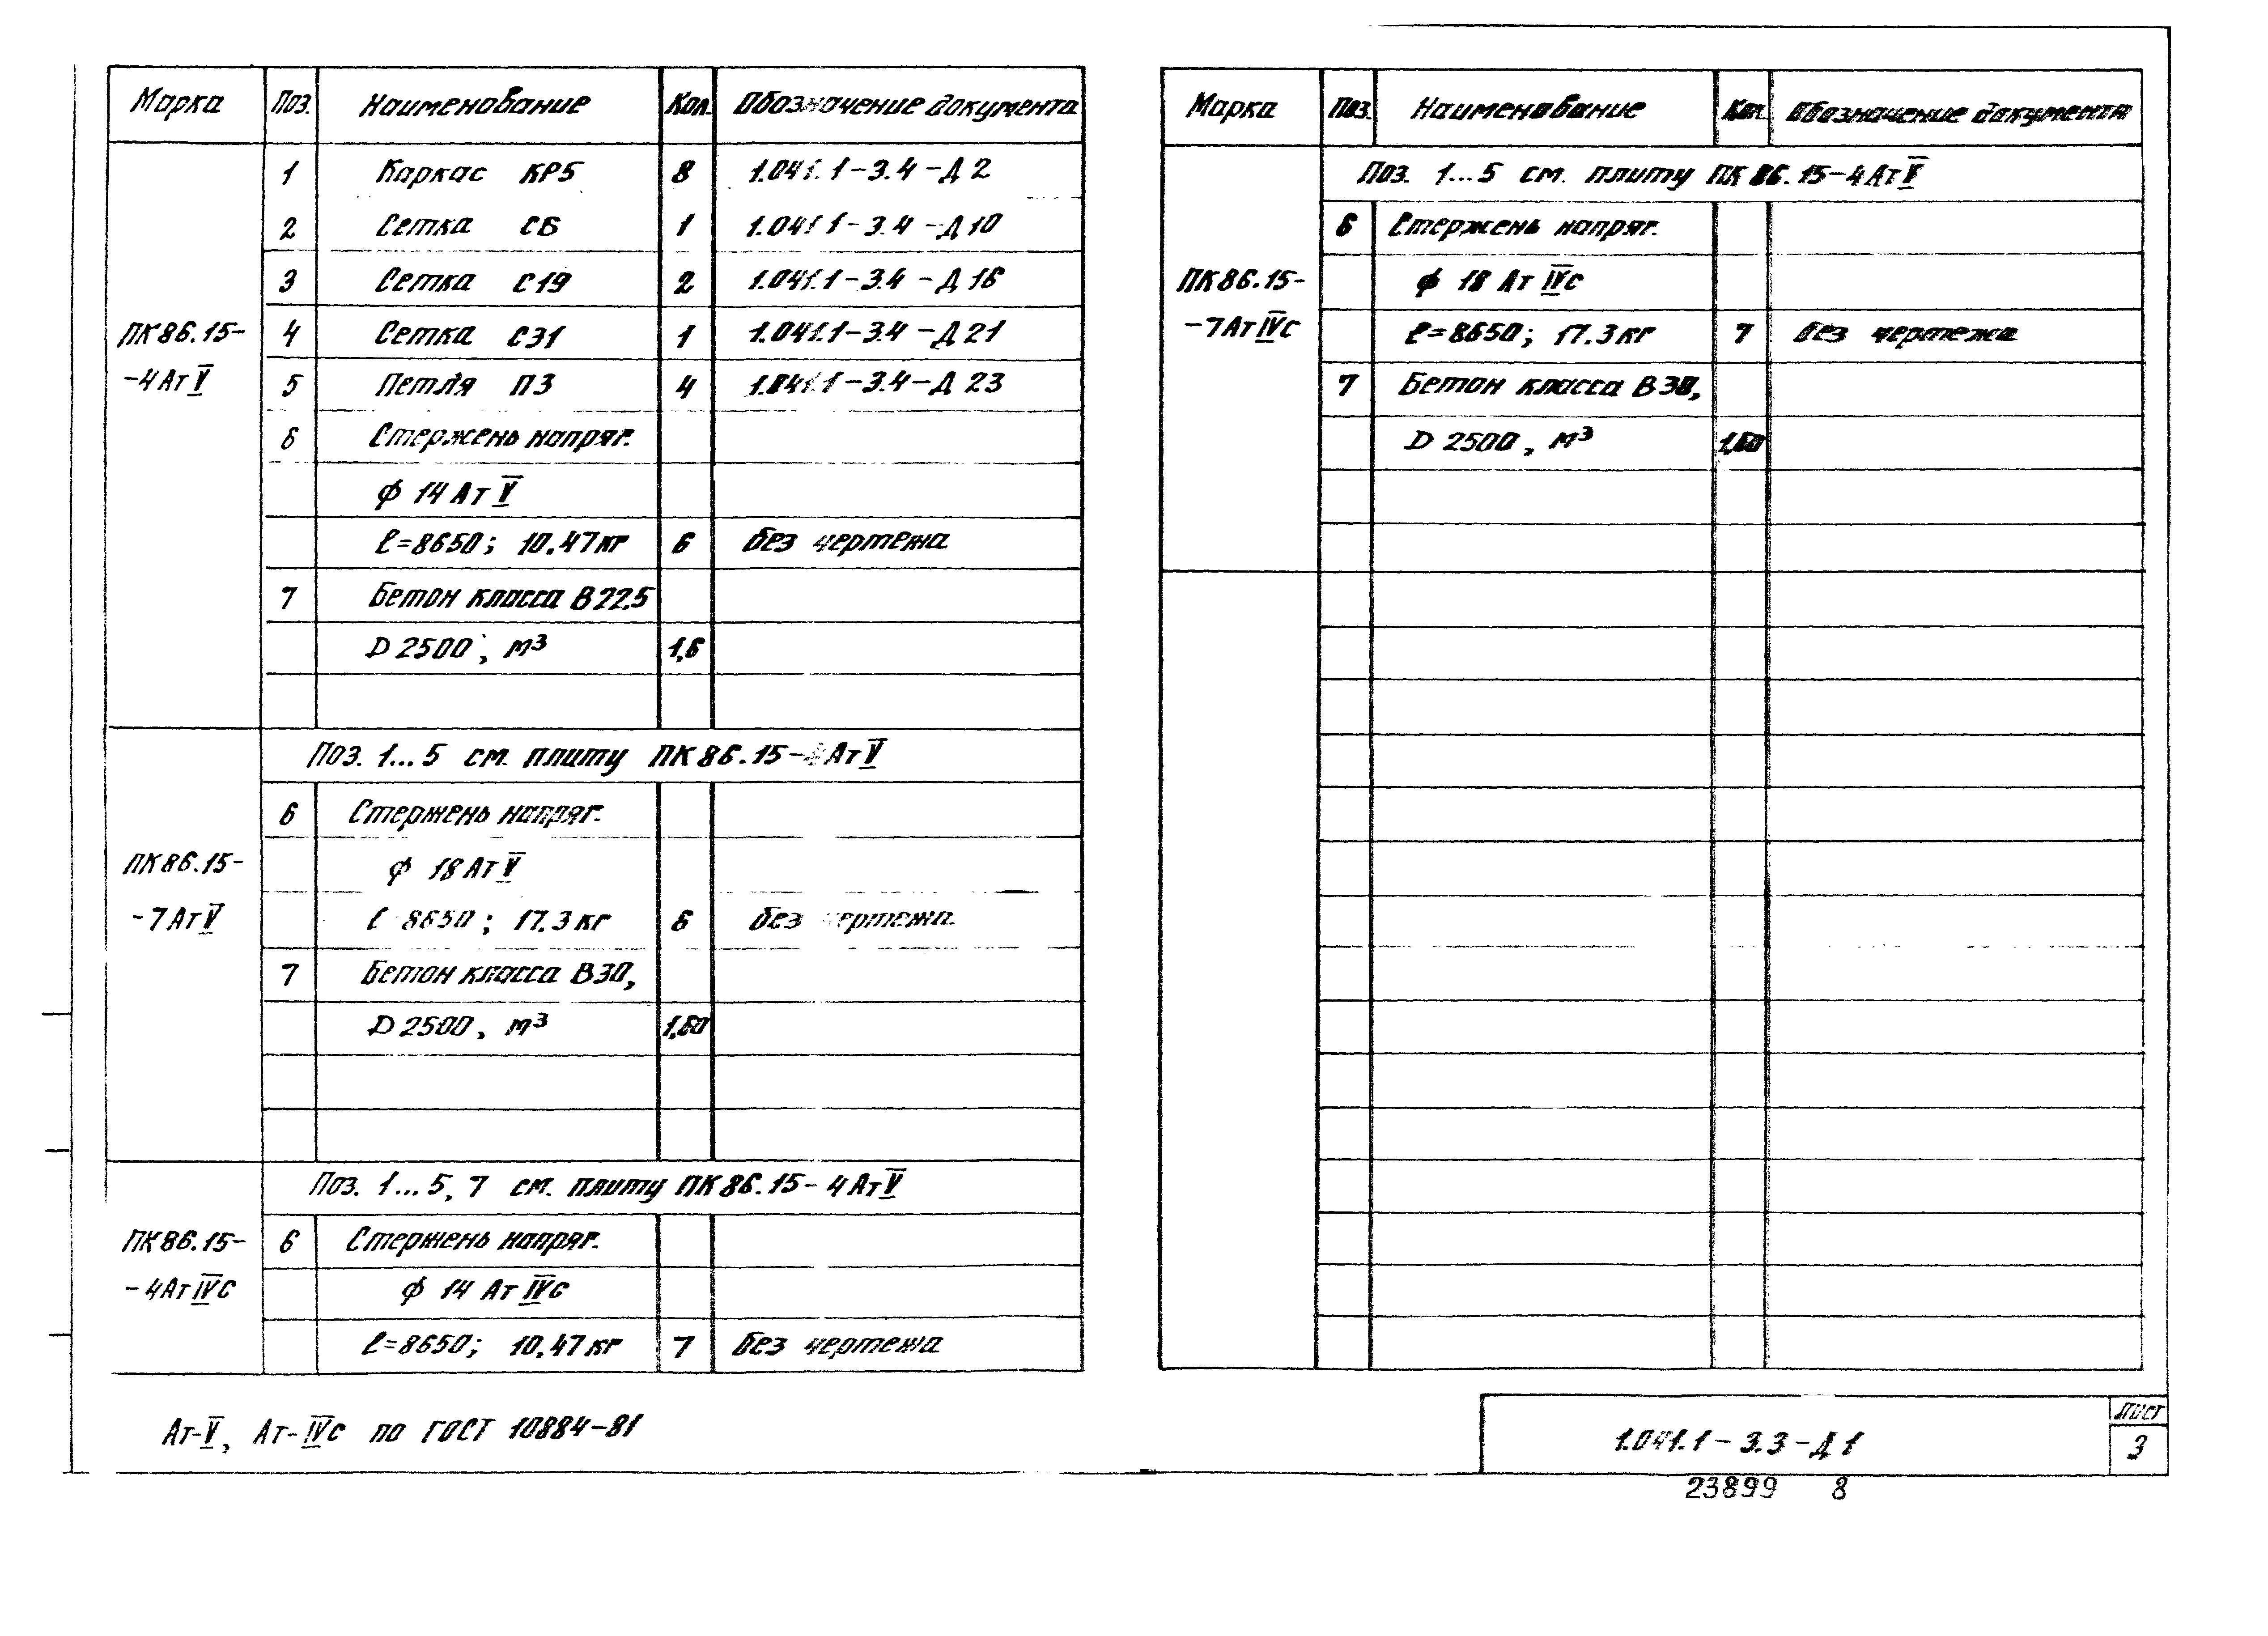 Марка Поз. Наименование Кол. Обозначение документа
1 Каркас КР5 8 1.041.1-3.4-Д2
2 Сетка С6 1 1.041.1-3.4-Д10
3 Сетка С19 2 1.041.1-3.4-Д16
ПК86.15- 4 Сетка С31 1 1.041.1-3.4-Д21
-4АтV 5 Петля П3 4 1.041.1-3.4-Д23
6 Стержень напряг.
ф 14 АтV
ℓ=8650; 10.47кг 6 без чертежа
7 Бетон класса В22.5
D 2500, м³ 1,6
Поз. 1...5 см. плиту ПК86.15-4АтV
6 Стержень напряг.
ПК86.15- ф 18АтV
-7АтV ℓ 8650; 17.3кг 6 без чертежа
7 Бетон класса В30,
D 2500, м³ 1,60
Поз. 1...5, 7 см. плиту ПК86.15-4АтV
ПК86.15- 6 Стержень напряг.
-4АтIVС ф 14 АтIVС
ℓ=8650; 10.47кг 7 без чертежа
Ат-V, Ат-IVС по ГОСТ 10884-81
Марка Поз. Наименование Кол. Обозначение документа
Поз. 1...5 см. плиту ПК86.15-4АтV
6 Стержень напряг.
ПК86.15- ф 18 АтIVС
-7АтIVС ℓ=8650; 17.3кг 7 без чертежа
7 Бетон класса В30,
D 2500, м³ 1,60
1.041.1-3.3-Д1
Лист
3
23899 8